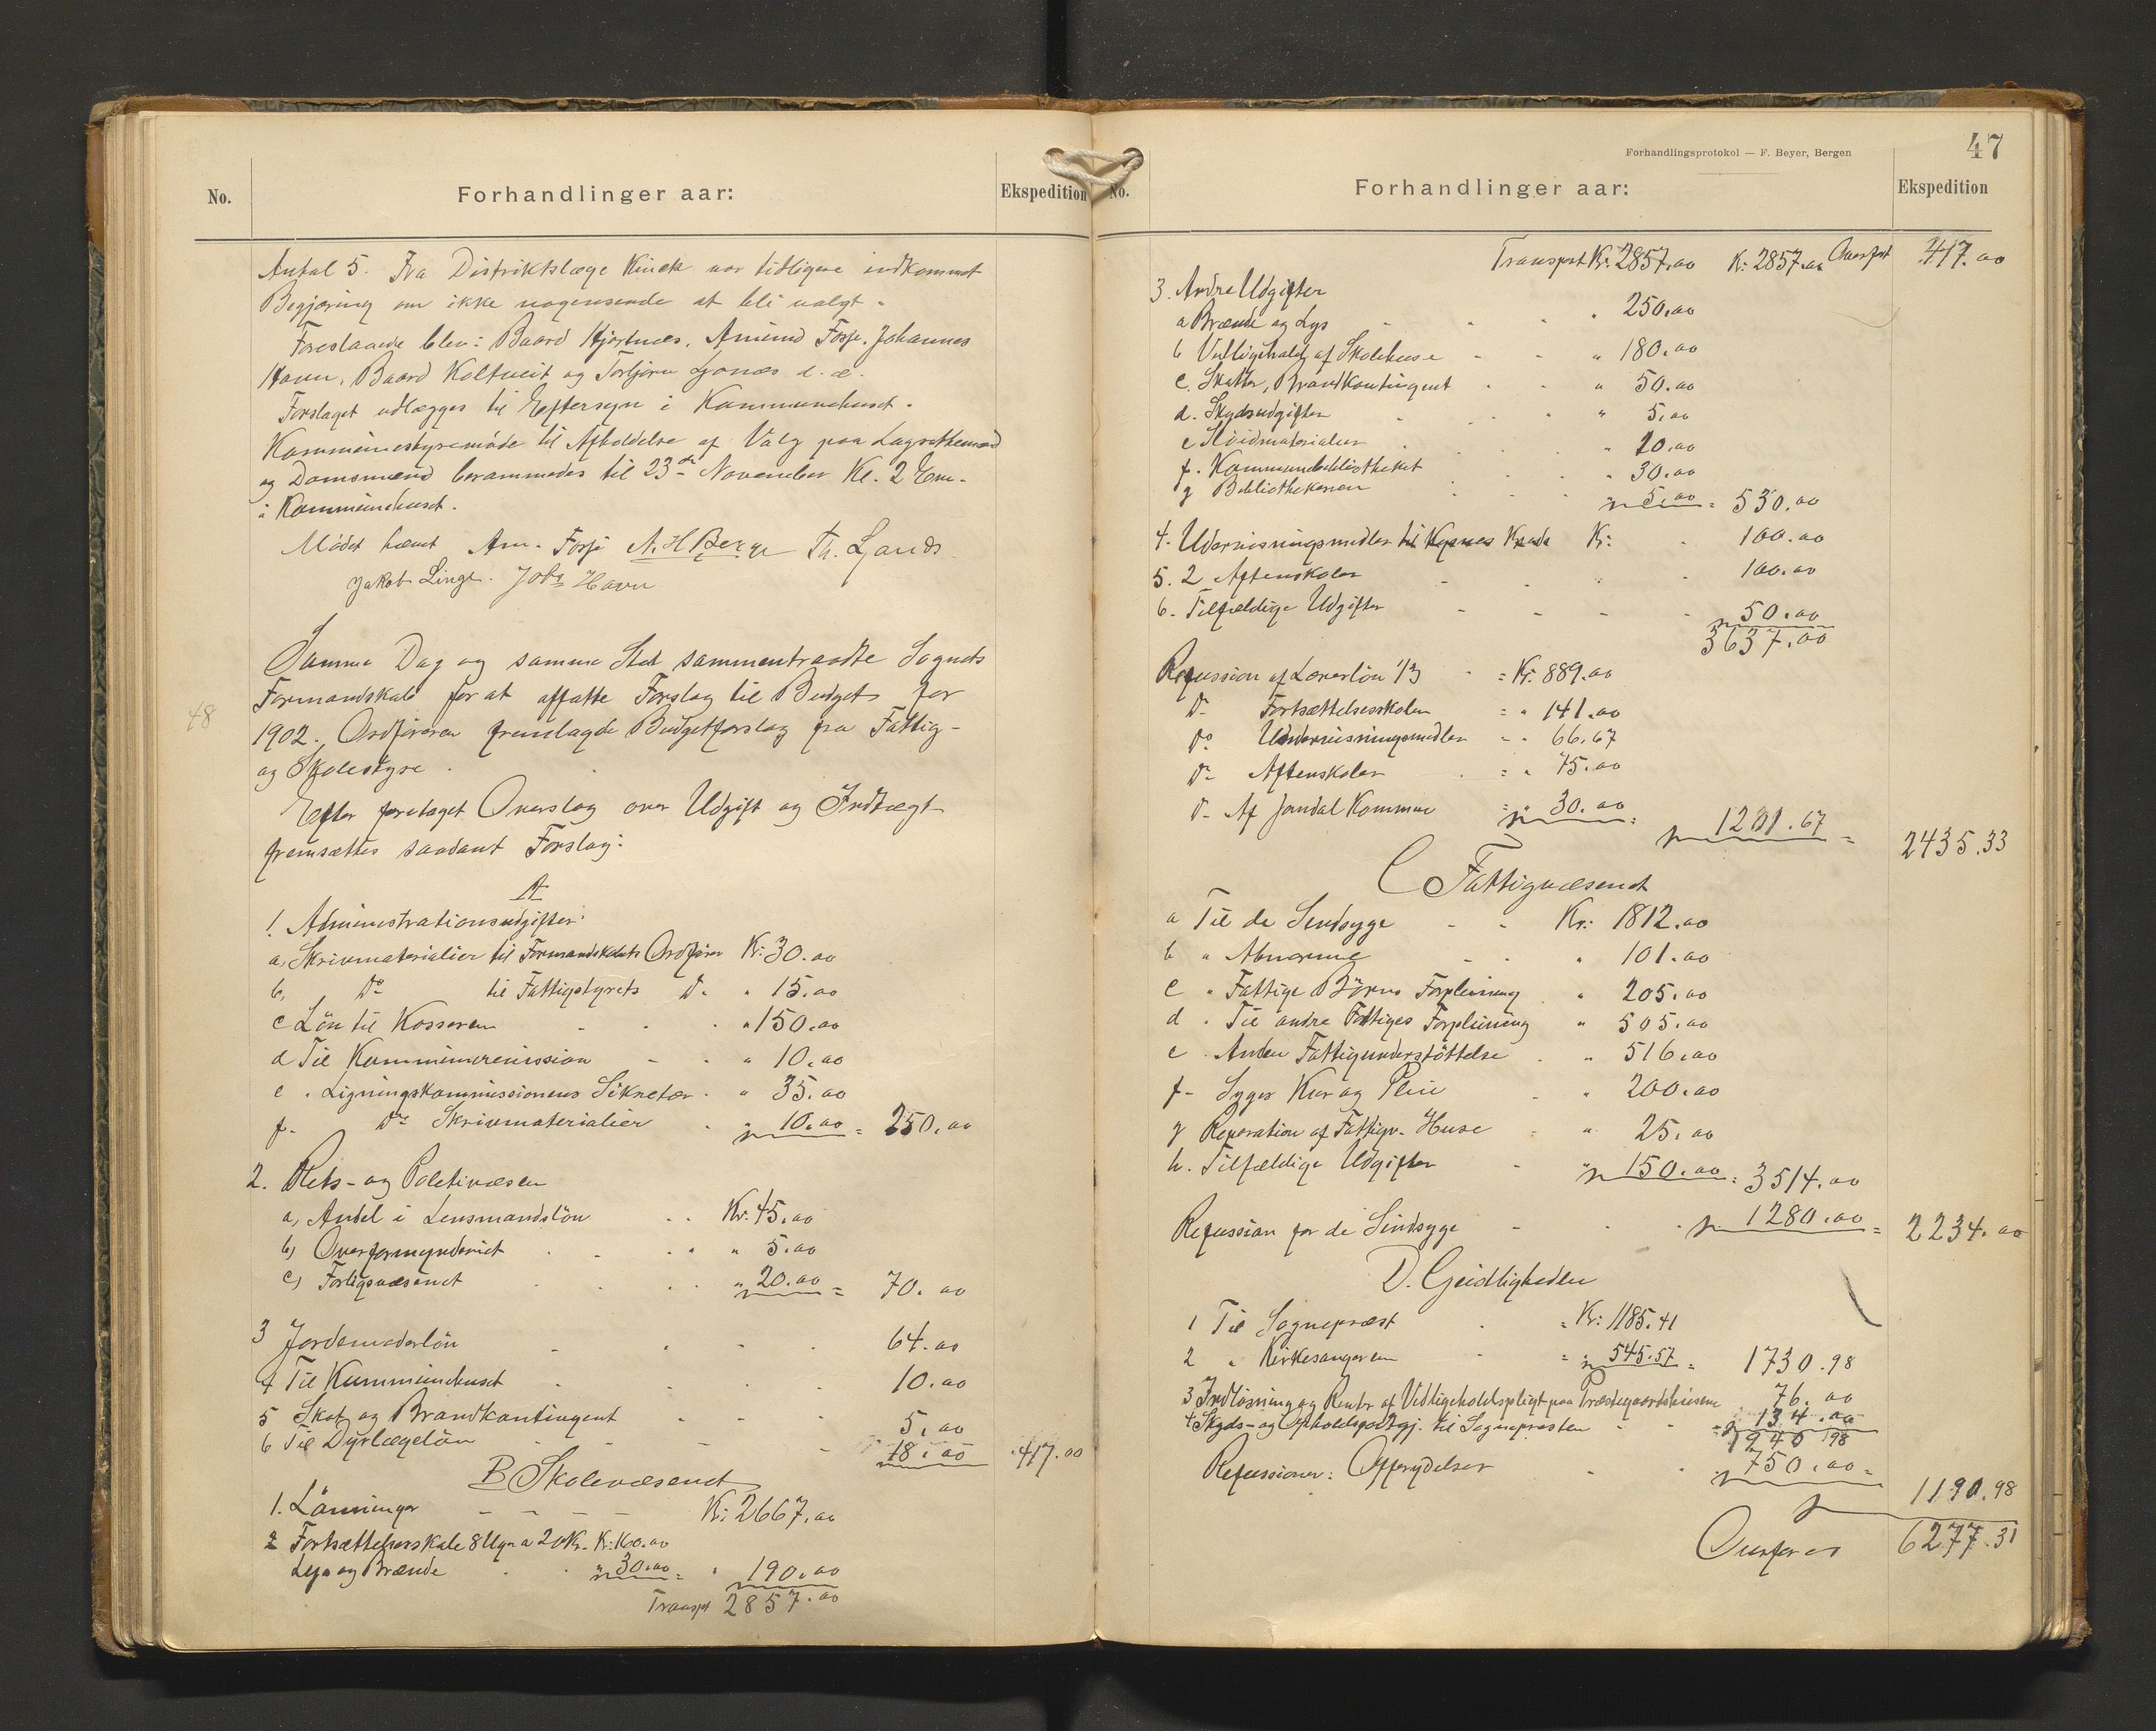 No.
Forhandlinger aar:
Ekspedition
Antal 5. Fra Distriktslæge Kinck var tidligere indkommet
Begjæring om ikke nogensinde at bli valgt.
Foreslaaede blev: Baard Hjortnæs, Amund Fosse, Johannes
Havn, Baard Koltveit og Torbjørn Ljonæs d. æ.
Forslaget udlægges til Eftersyn i Kommunehuset.
Kommunestyremøde til Afholdelse af Valg paa Lagrettemænd
og Domsmænd berammedes til 23de November Kl. 2 Em.
i Kommunehuset.
Mødet hævet Am. Fosse A. H Berge Th. Ljonæs
Jakob Linge. Johs Havn
48
Samme Dag og samme Sted sammentraadte Sognets
Formandskab for at affatte Forslag til Budget for
1902. Ordføreren fremlagde Budgetforslag fra Fattig-
og Skolestyre.
Efter foretaget Overslag over Udgift og Indtægt
fremsættes saadant Forslag:
A
1. Administrationsudgifter:
a, Skrivmaterialier til Formandskabets Ordfører Kr: 30.00
b, Do til Fattigstyrets Do " 15.00
c Løn til Kasseren " 150.00
d Til Kommunerevission " 10.00
e " Ligningskommissionens Sikretær " 35.00
f- Do Skrivmaterialier " 10.00 = 250.00
2. Rets- og Politivæsen
a, Andel i Lensmandsløn Kr: 45.00
b) Overformynderiet " 5.00
c) Forligsvæsenet " 20.00 = 70.00
3 Jordemoderløn 64.00
4 Til Kummunehuset 10.00
5 Skat og Brandkontingent 5.00
6 Til Dyrlægeløn 18.00 417.00
B Skolevæsenet
1. Lønninger Kr: 2667.00
2 Fortsættelsesskole 8 Uger a 20 Kr. Kr: 160.00
Lys og Brænde " 30.00 = " 190.00
Transpt 2857.00
47
Forhandlingsprotokol — F. Beyer, Bergen
No.
Forhandlinger aar:
Ekspedition
Transport Kr: 2857.00 Kr: 2857.00 Overført 417.00
3. Andre Udgifter
a Brænde og Lys " 250.00
b Vedligehold af Skolehuse " 180.00
c. Skatter, Brandkontingent " 50.00
d. Skydsudgifter " 5.00
e Sløidmaterialier " 10.00
f. Kommunebibliotheket " 30.00
g Bibliothekaren " 5.00 = 530.00
4. Udervisningsmidler Kr: 100.00
5. 2 Aftenskoler 100.00
6. Tilfældige Udgifter 50.00
3637.00
Refussion af Lærerløn 1/3 = Kr: 889.00
Do Fortsættelsesskolen = " 141.00
Do Undervisningsmidler " 66.67
Do Aftenskolen = " 75.00
Do Af Jondal Kommune = " 30.00 =
1201.67 = 2435.33
C Fattigvæsenet
a Til de Sindsyge Kr: 1812.00
b " Abnorme " 101.00
c " Fattige Børns Forpleining " 205.00
d " Til andre Fattiges Forpleining " 505.00
e " Anden Fattigunderstøttelse " 516.00
f- Syges Kur og Pleie " 200.00
g Reparation af Fattigv. Huse " 25.00
h. Tilfældige Udgifter " 150.00 = 3514.00
Refussion for de Sindsyge 1280.00 = 2234.00
D. Geistligheden
1 Til Sognepræst = Kr: 1185.41
2 " Kirkesangeren = " 545.57 = 1730.98
3 Indløsning og Renter af Vedligeholdspligt paa Præstegaardshusene 76.00
4 Skyds- og Opholdsgodtgj. til Sognepræsten 134.00
1940.98
Refussioner: Offerydelser 750.00 =
1190.98
Overføres 6277.31